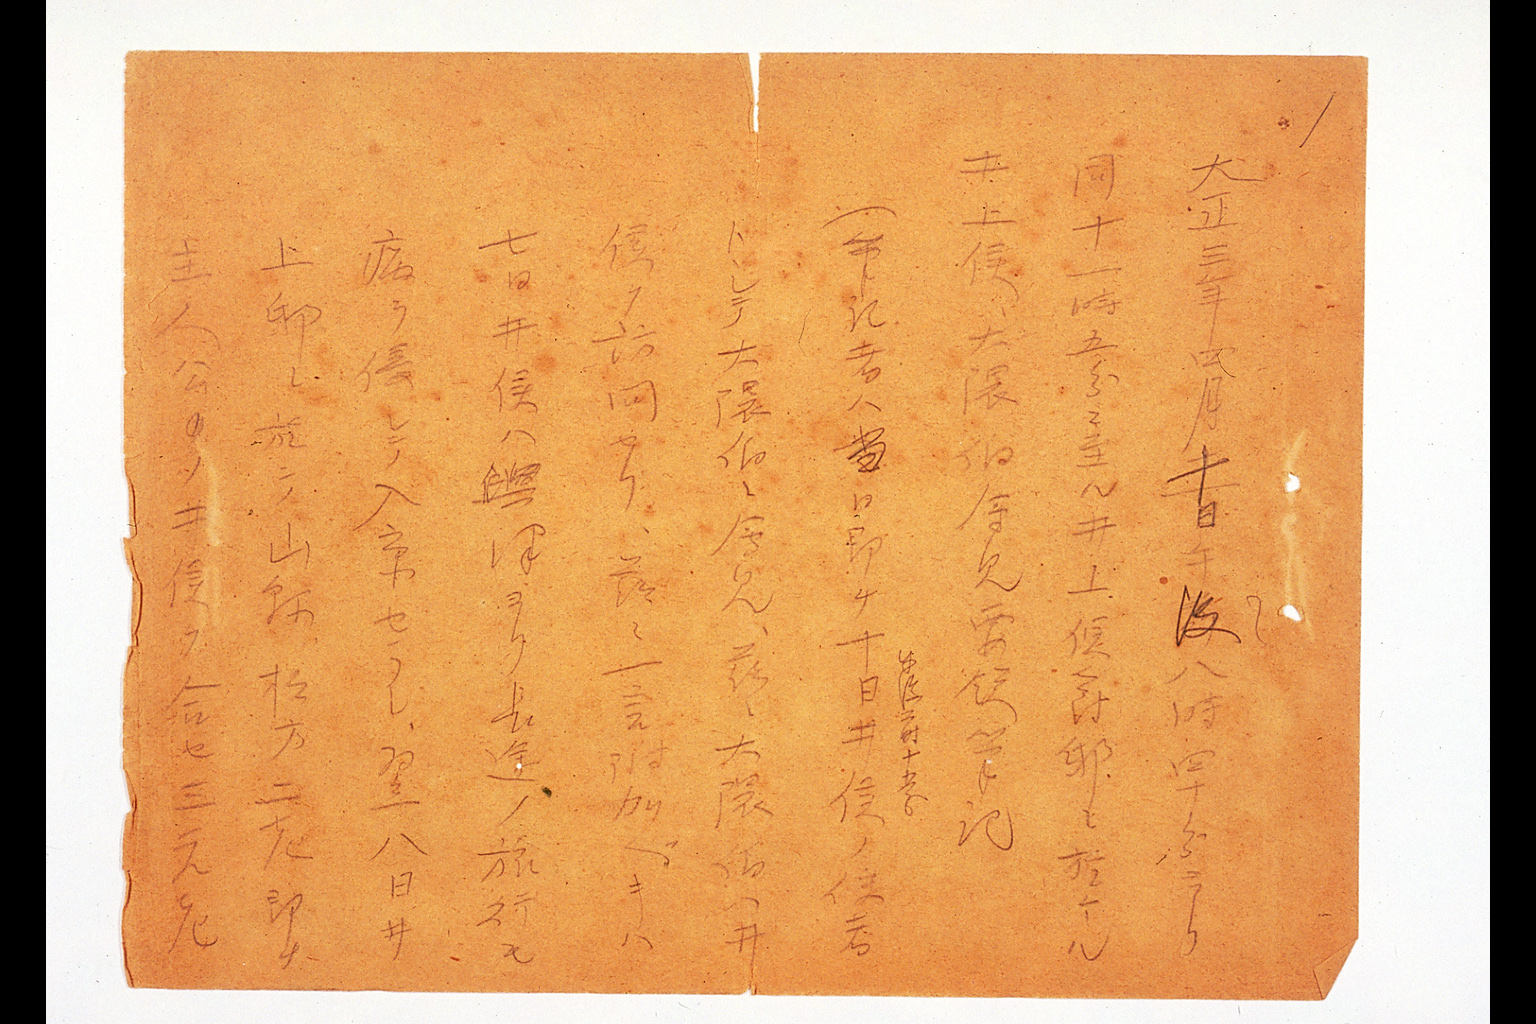 大正三年四月十日午後八時四十分ヨリ
同十一時五分ニ至ル井上侯爵邸ニ於ケル
井上侯、大隈伯会見要領筆記
(筆記者ハ当日即チ十日井侯ノ使者
午後二時十五分
トシテ大隈伯ニ会見、茲ニ大隈伯ハ井
侯ヲ訪問セリ、茲ニ一言附加ベキハ
七日井侯ハ興津ヨリ長途ノ旅行モ
病ヲ侵シテ入京セラレ、翌八日井
上邸ニ於テ山縣、松方二老即チ
主人公タルノ井侯ヲ合セ三元老